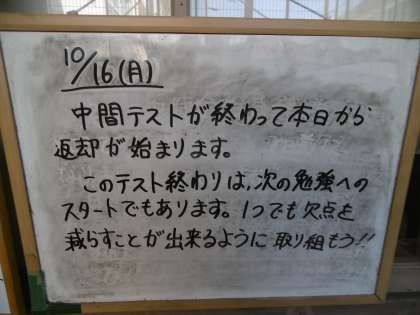 10/16(月)
中間テストが終わって本日から
返却が始まります。
このテスト終わりは,次の勉強への
スタートでもあります。1つでも欠点を
減らすことが出来るように取り組もう!!